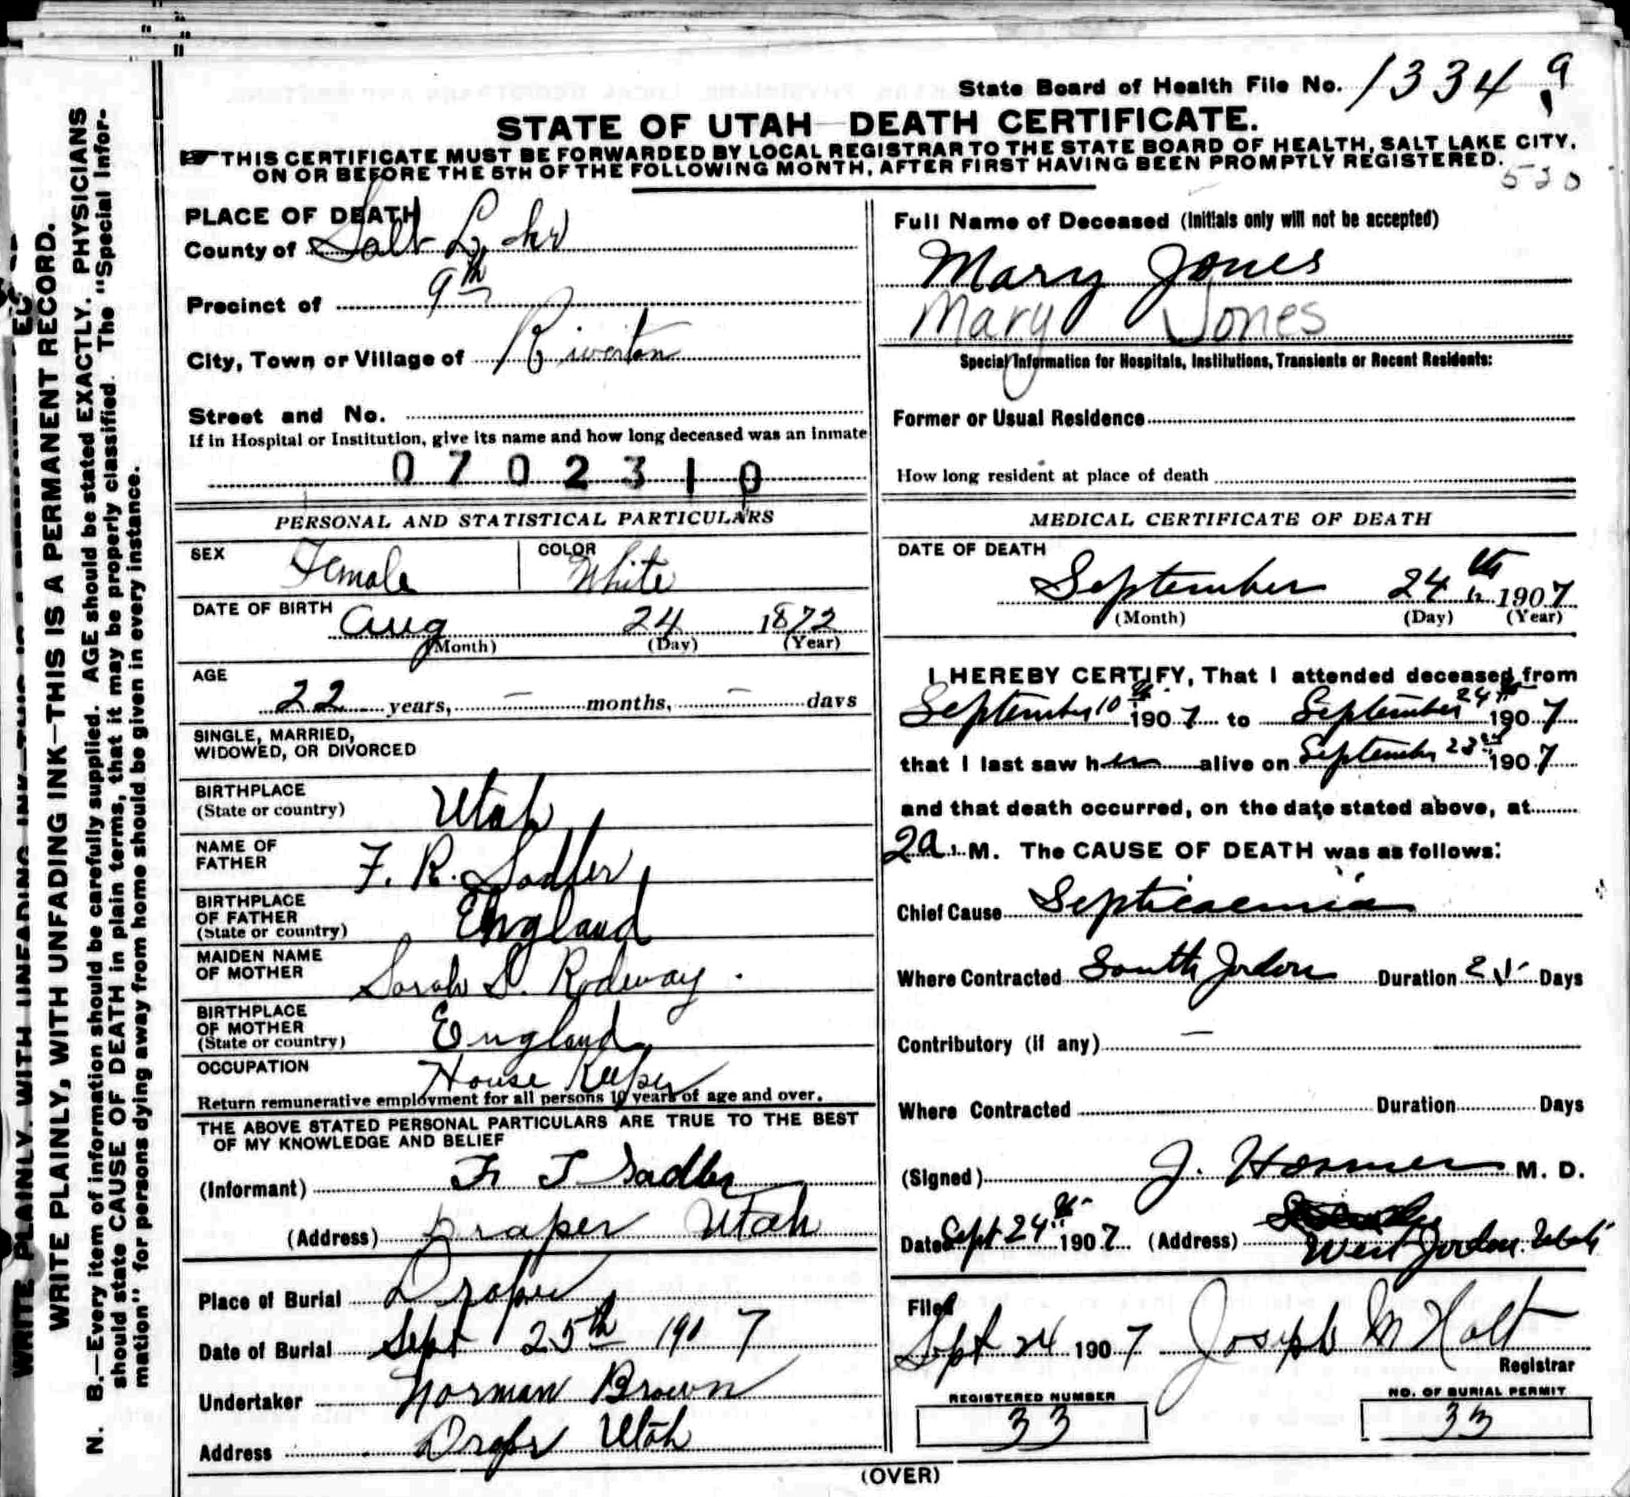 State Board of Health File No. 1334
STATE OF UTAH—DEATH CERTIFICATE.
THIS CERTIFICATE MUST BE FORWARDED BY LOCAL REGISTRAR TO THE STATE BOARD OF HEALTH, SALT LAKE CITY,
ON OR BEFORE THE 5TH OF THE FOLLOWING MONTH, AFTER FIRST HAVING BEEN PROMPTLY REGISTERED.
530
WRITE PLAINLY, WITH UNFADING INK—THIS IS A PERMANENT RECORD.
N. B.—Every item of information should be carefully supplied. AGE should be stated EXACTLY. PHYSICIANS
should state CAUSE OF DEATH in plain terms, that it may be properly classified. The "Special Infor-
mation" for persons dying away from home should be given in every instance.
PLACE OF DEATH
County of Salt Lake
Precinct of 9th
City, Town or Village of Riverton
Street and No.
If in Hospital or Institution, give its name and how long deceased was an inmate
0702310
PERSONAL AND STATISTICAL PARTICULARS
SEX Female COLOR White
DATE OF BIRTH Aug 24 1872
(Month) (Day) (Year)
AGE
22 years, — months, — days
SINGLE, MARRIED,
WIDOWED, OR DIVORCED
BIRTHPLACE
(State or country) Utah
NAME OF
FATHER F. R. Sadler
BIRTHPLACE
OF FATHER
(State or country) England
MAIDEN NAME
OF MOTHER Sarah S. Rodway
BIRTHPLACE
OF MOTHER
(State or country) England
OCCUPATION House Keeper
Return remunerative employment for all persons 10 years of age and over.
THE ABOVE STATED PERSONAL PARTICULARS ARE TRUE TO THE BEST
OF MY KNOWLEDGE AND BELIEF
(Informant) F. T Sadler
(Address) Draper Utah
Place of Burial Draper
Date of Burial Sept 25th 1907
Undertaker Norman Brown
Address Draper Utah
Full Name of Deceased (Initials only will not be accepted)
Mary Jones
Mary Jones
Special Information for Hospitals, Institutions, Transients or Recent Residents:
Former or Usual Residence
How long resident at place of death
MEDICAL CERTIFICATE OF DEATH
DATE OF DEATH
September 24th 1907
(Month) (Day) (Year)
I HEREBY CERTIFY, That I attended deceased from
September 10th 1907 to September 24th 1907
that I last saw her alive on September 23rd 1907
and that death occurred, on the date stated above, at
2a.M. The CAUSE OF DEATH was as follows:
Chief Cause Septicaemia
Where Contracted South Jordan Duration Days
Contributory (if any) —
Where Contracted Duration Days
(Signed) J. Hosmer M. D.
Date Sept 24th 1907 (Address) West Jordan Utah
Filed
Sept 24 1907 Joseph M Holt
Registrar
REGISTERED NUMBER
33
NO. OF BURIAL PERMIT
33
(OVER)